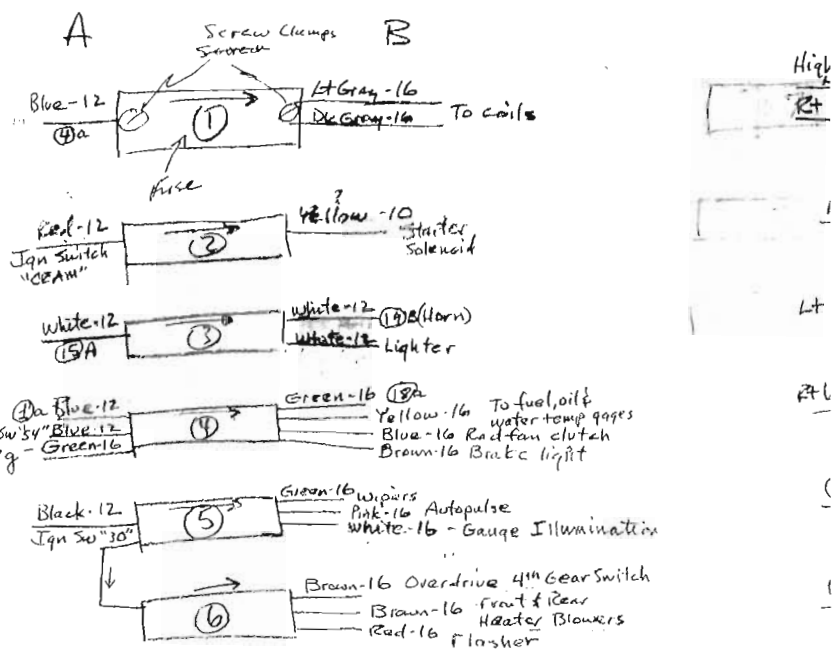 A B
Screw Clamps
Blue-12
4a
1
Lt Gray-16
Dk Gray-16
To coils
Fuse
Red-12
Ign Switch
2
?
Yellow-10
Starter
Solenoid
White-12
15A
3
White-12
(Horn)
White-12
Lighter
1a Blue-12
Sw "54" Blue-12
Green-16
4
Green-16 18a
Yellow-16 To fuel, oil &
water temp gages
Blue-16 Rad fan clutch
Brown-16 Brake light
Black-12
Ign Sw "30"
5
Green-16 Wipers
Pink-16 Autopulse
White-16 - Gauge Illumination
6
Brown-16 Overdrive 4th Gear Switch
Brown-16 Front & Rear
Heater Blowers
Red-16 Flasher
High
Rt
Lt
Rt